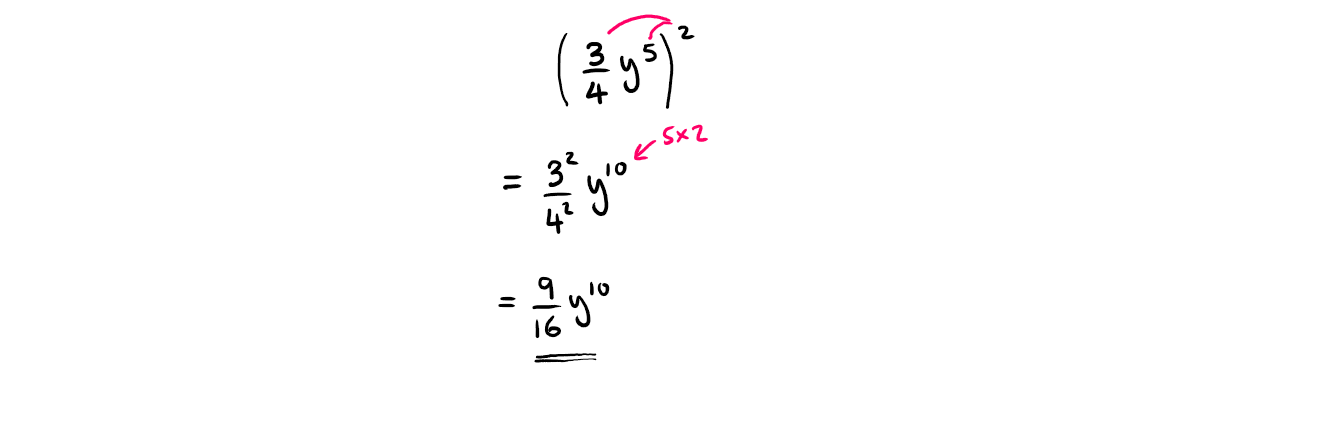 (3/4 y⁵)²
= 3²/4² y¹⁰ ← 5×2
= 9/16 y¹⁰